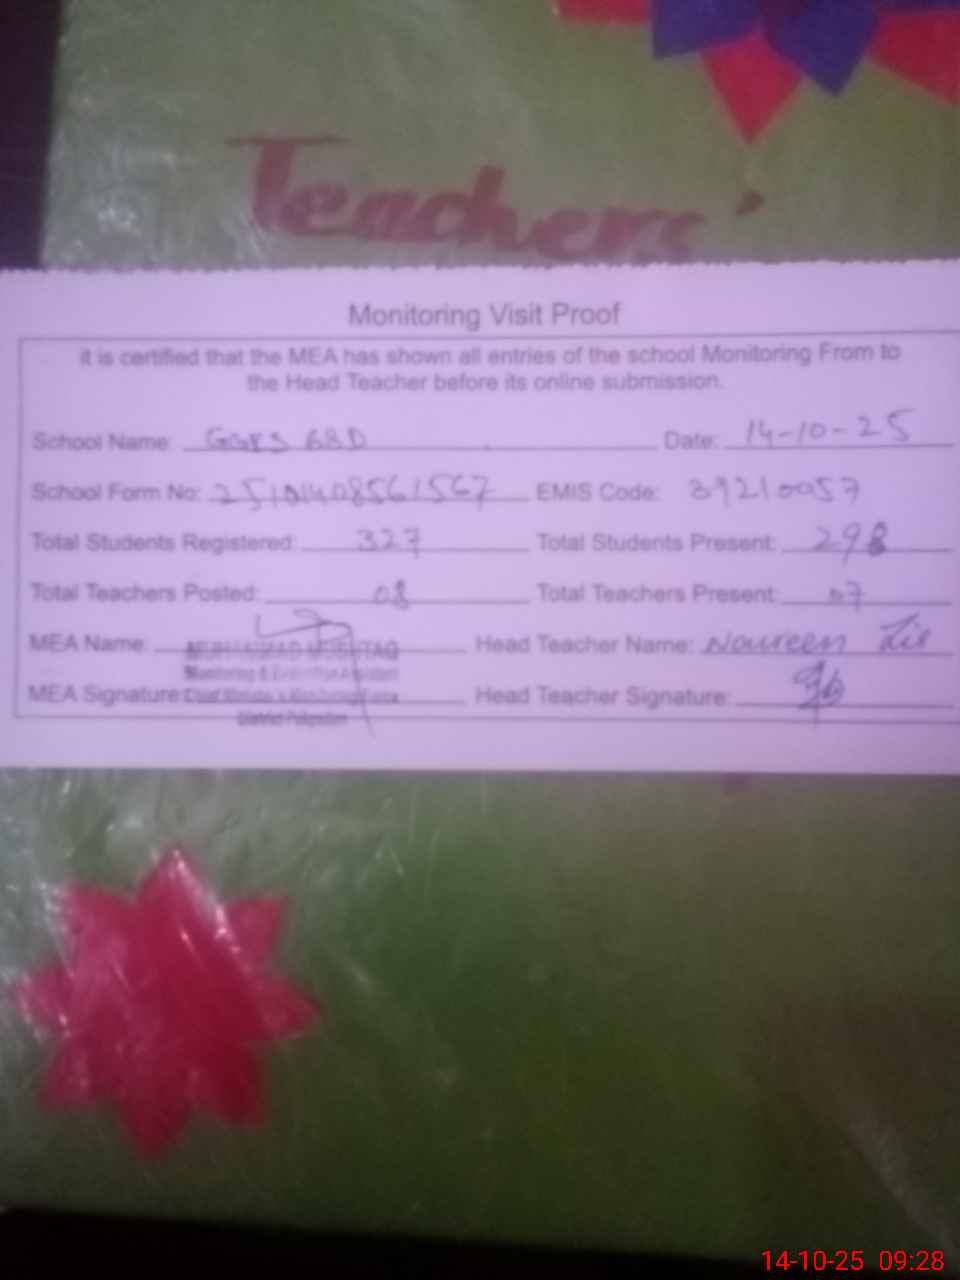 Teachers'
Monitoring Visit Proof
It is certified that the MEA has shown all entries of the school Monitoring From to
the Head Teacher before its online submission.
School Name: GGES 68D Date: 14-10-25
School Form No: 25101408561567 EMIS Code: 39210057
Total Students Registered: 327 Total Students Present: 298
Total Teachers Posted: 08 Total Teachers Present: 07
MEA Name: MUHAMMAD MUSHTAQ Head Teacher Name: Noureen
Monitoring & Evaluation Assistant
MEA Signature: Chief Minister's Monitoring Force Head Teacher Signature:
District Pakpattan
14-10-25 09:28